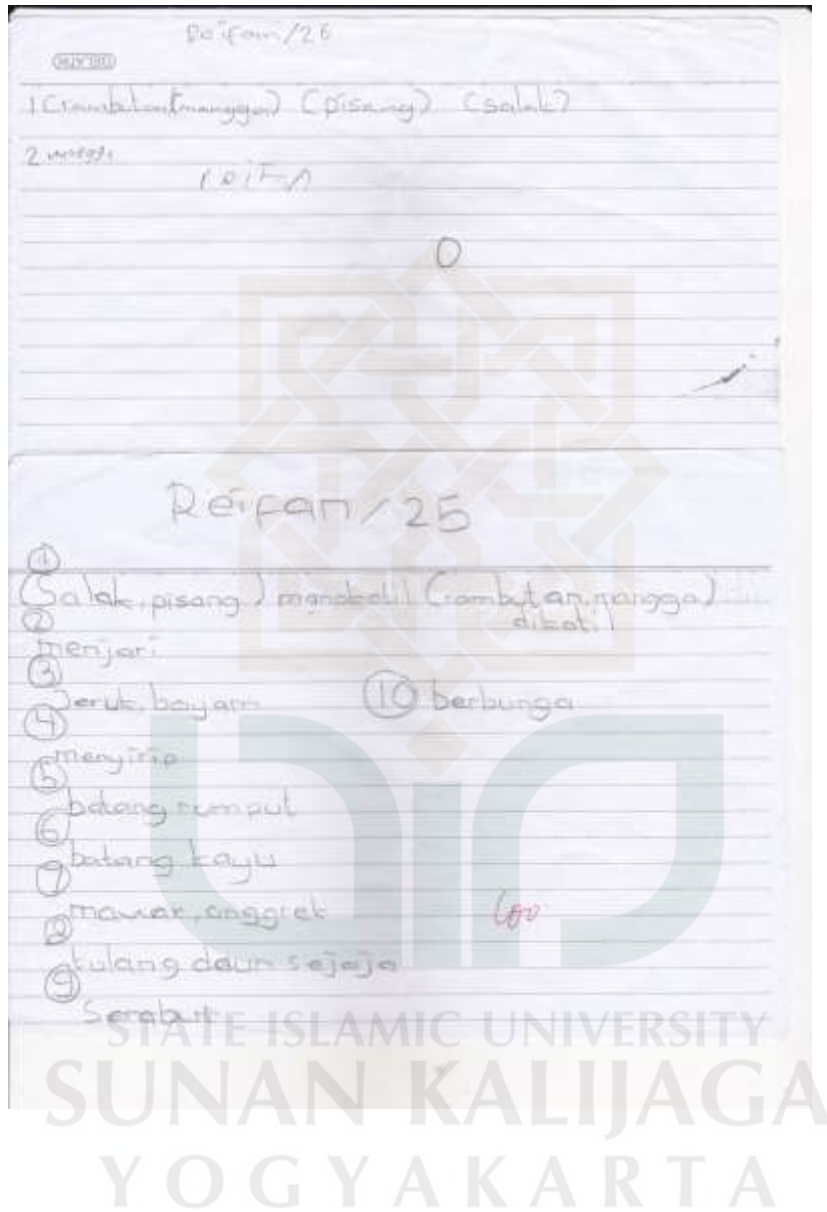 Reifan/26
1 (rambutan(mangga) (pisang) (salak)
2
O
Reifan/25
①
(Salak, pisang) monokotil (rambutan, mangga)
dikotil
②
menjari
③
Jeruk, bayam ⑩ berbunga
④
menyirip
⑤
batang rumput
⑥
batang kayu
⑦
mawar, anggrek 100
⑧
tulang daun sejaja
⑨
Serabut
STATE ISLAMIC UNIVERSITY
SUNAN KALIJAGA
YOGYAKARTA